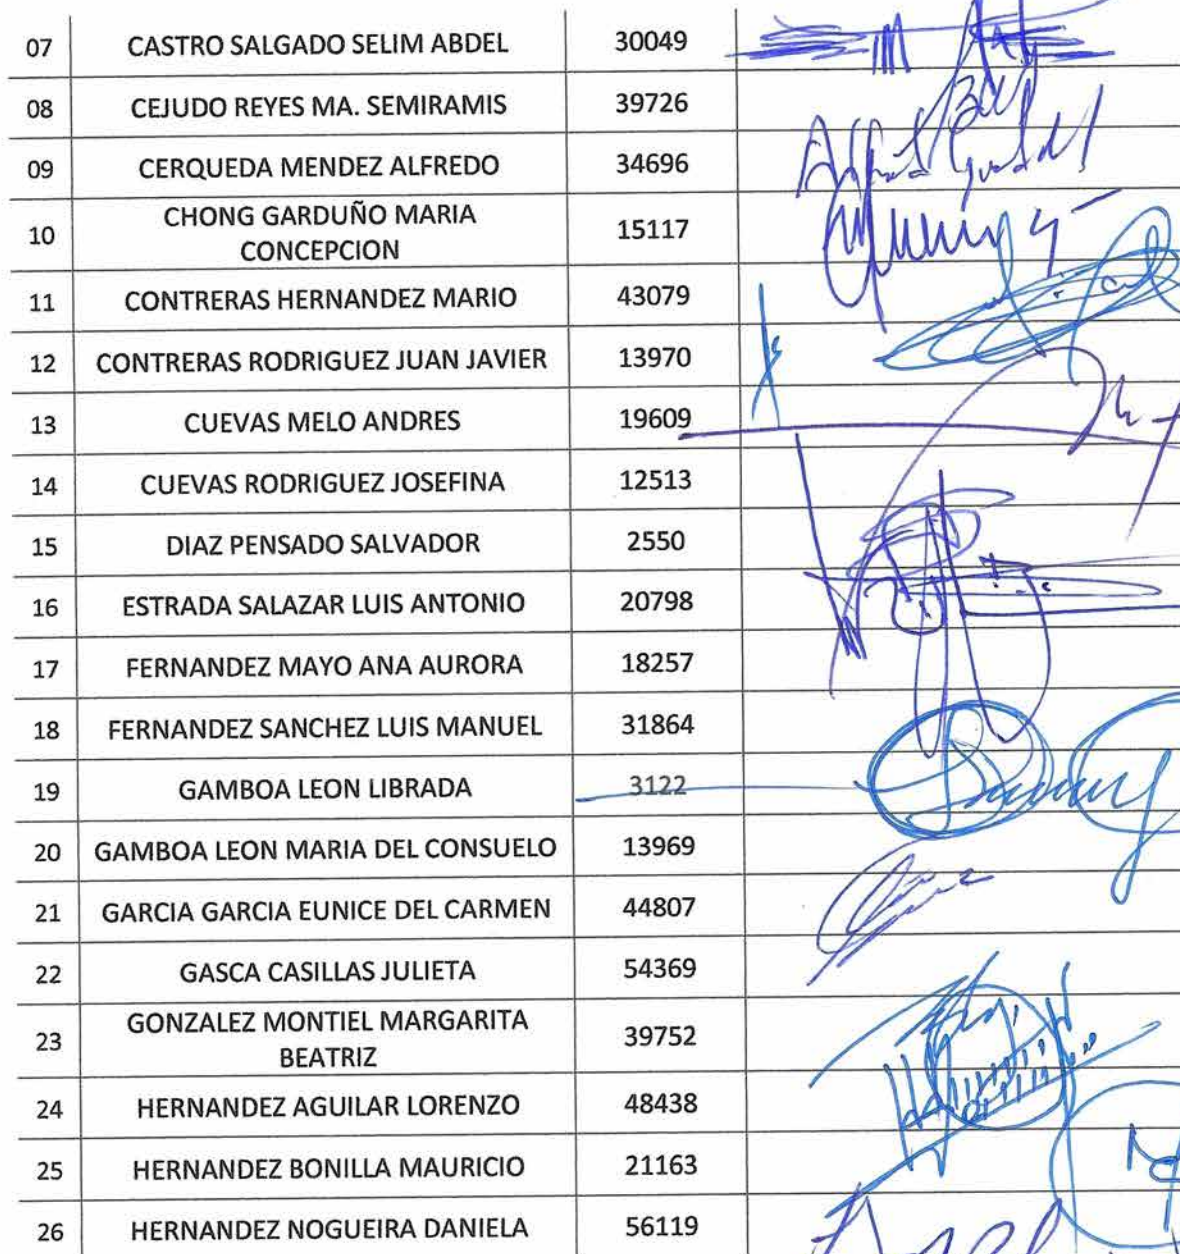 07 CASTRO SALGADO SELIM ABDEL 30049
08 CEJUDO REYES MA. SEMIRAMIS 39726
09 CERQUEDA MENDEZ ALFREDO 34696
10 CHONG GARDUÑO MARIA
CONCEPCION 15117
11 CONTRERAS HERNANDEZ MARIO 43079
12 CONTRERAS RODRIGUEZ JUAN JAVIER 13970
13 CUEVAS MELO ANDRES 19609
14 CUEVAS RODRIGUEZ JOSEFINA 12513
15 DIAZ PENSADO SALVADOR 2550
16 ESTRADA SALAZAR LUIS ANTONIO 20798
17 FERNANDEZ MAYO ANA AURORA 18257
18 FERNANDEZ SANCHEZ LUIS MANUEL 31864
19 GAMBOA LEON LIBRADA 3122
20 GAMBOA LEON MARIA DEL CONSUELO 13969
21 GARCIA GARCIA EUNICE DEL CARMEN 44807
22 GASCA CASILLAS JULIETA 54369
23 GONZALEZ MONTIEL MARGARITA
BEATRIZ 39752
24 HERNANDEZ AGUILAR LORENZO 48438
25 HERNANDEZ BONILLA MAURICIO 21163
26 HERNANDEZ NOGUEIRA DANIELA 56119